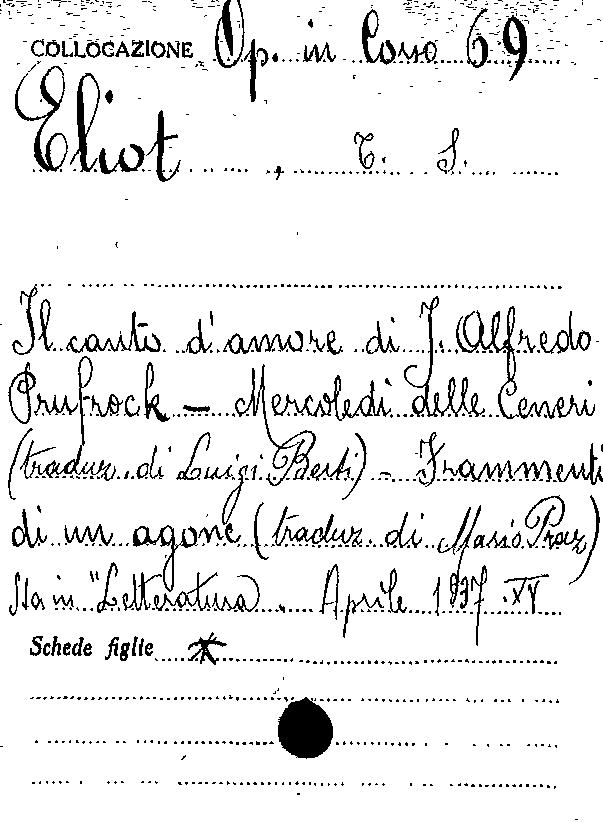 COLLOCAZIONE Op. in Corso 69
Eliot , T. S.
Il canto d'amore di J. Alfredo
Prufrock — Mercoledì delle Ceneri
(traduz. di Luigi Berti) - Frammenti
di un agone (traduz. di Mario Praz)
Sta in "Letteratura. Aprile 1937. XV
Schede figlie *